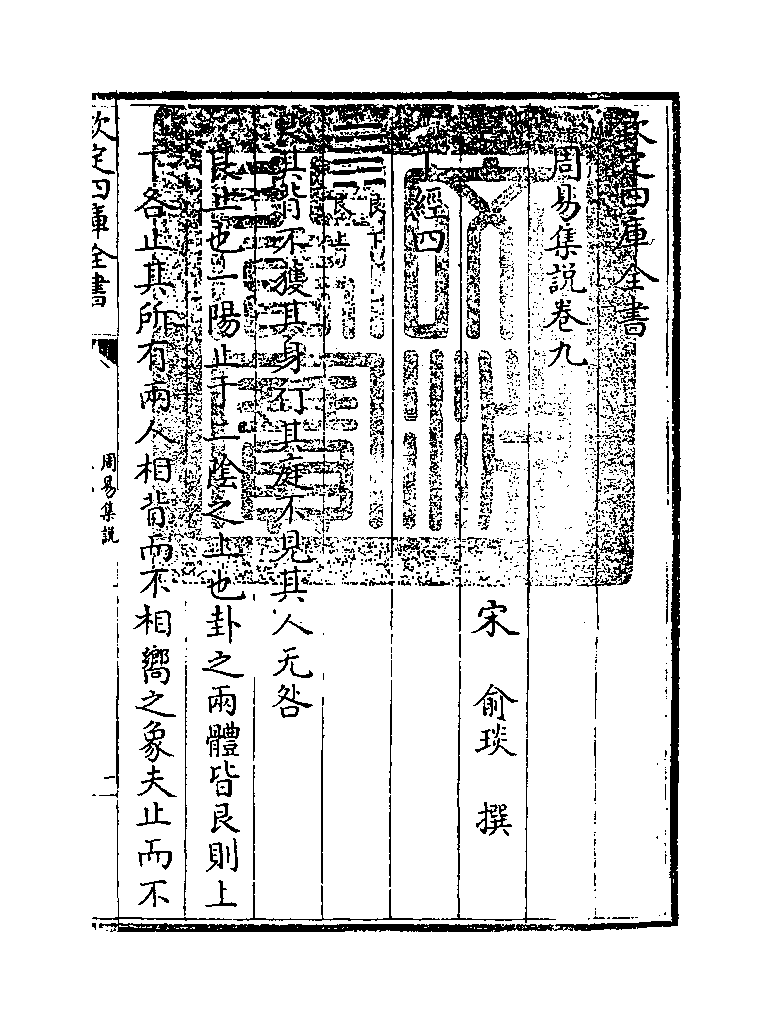 欽定四庫全書
周易集說卷九
宋 俞琰 撰
下經四
艮下
艮上
艮其背不獲其身行其庭不見其人无咎
艮止也一陽止于二陰之上也卦之兩體皆艮則上
下各止其所有兩人相背而不相嚮之象夫止而不
欽定四庫全書
周易集說